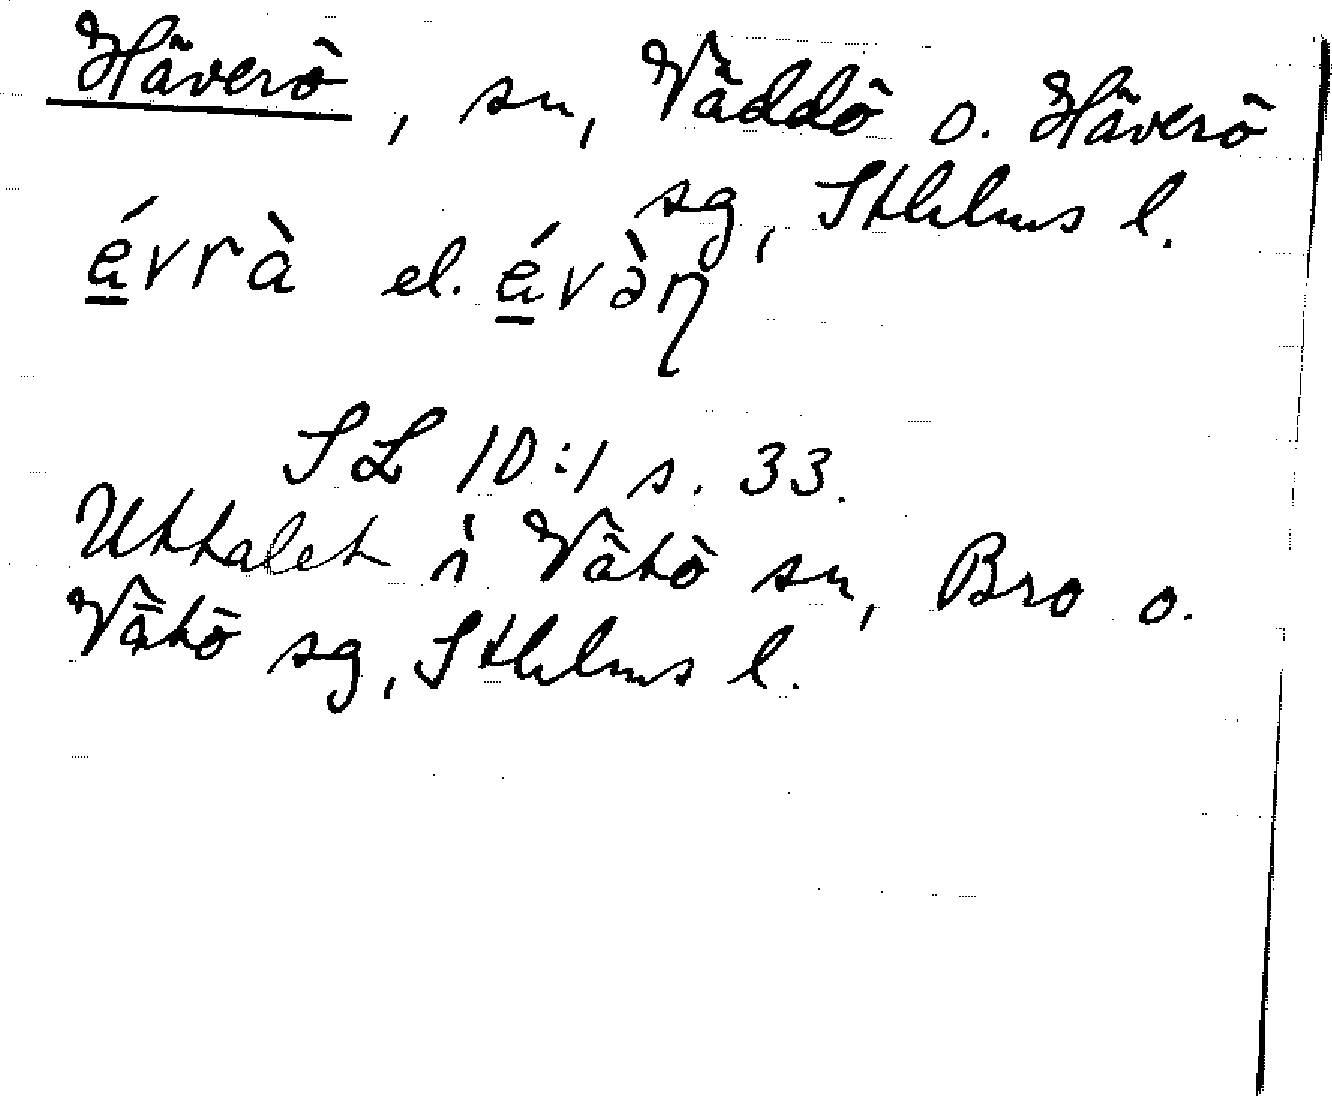 Häverö, sn, Väddö o. Häverö
sg, Sthlms l.
ávrà el. ávàn
SL 10:1 s. 33.
Uttalet i Vätö sn, Bro o.
Vätö sg, Sthlms l.